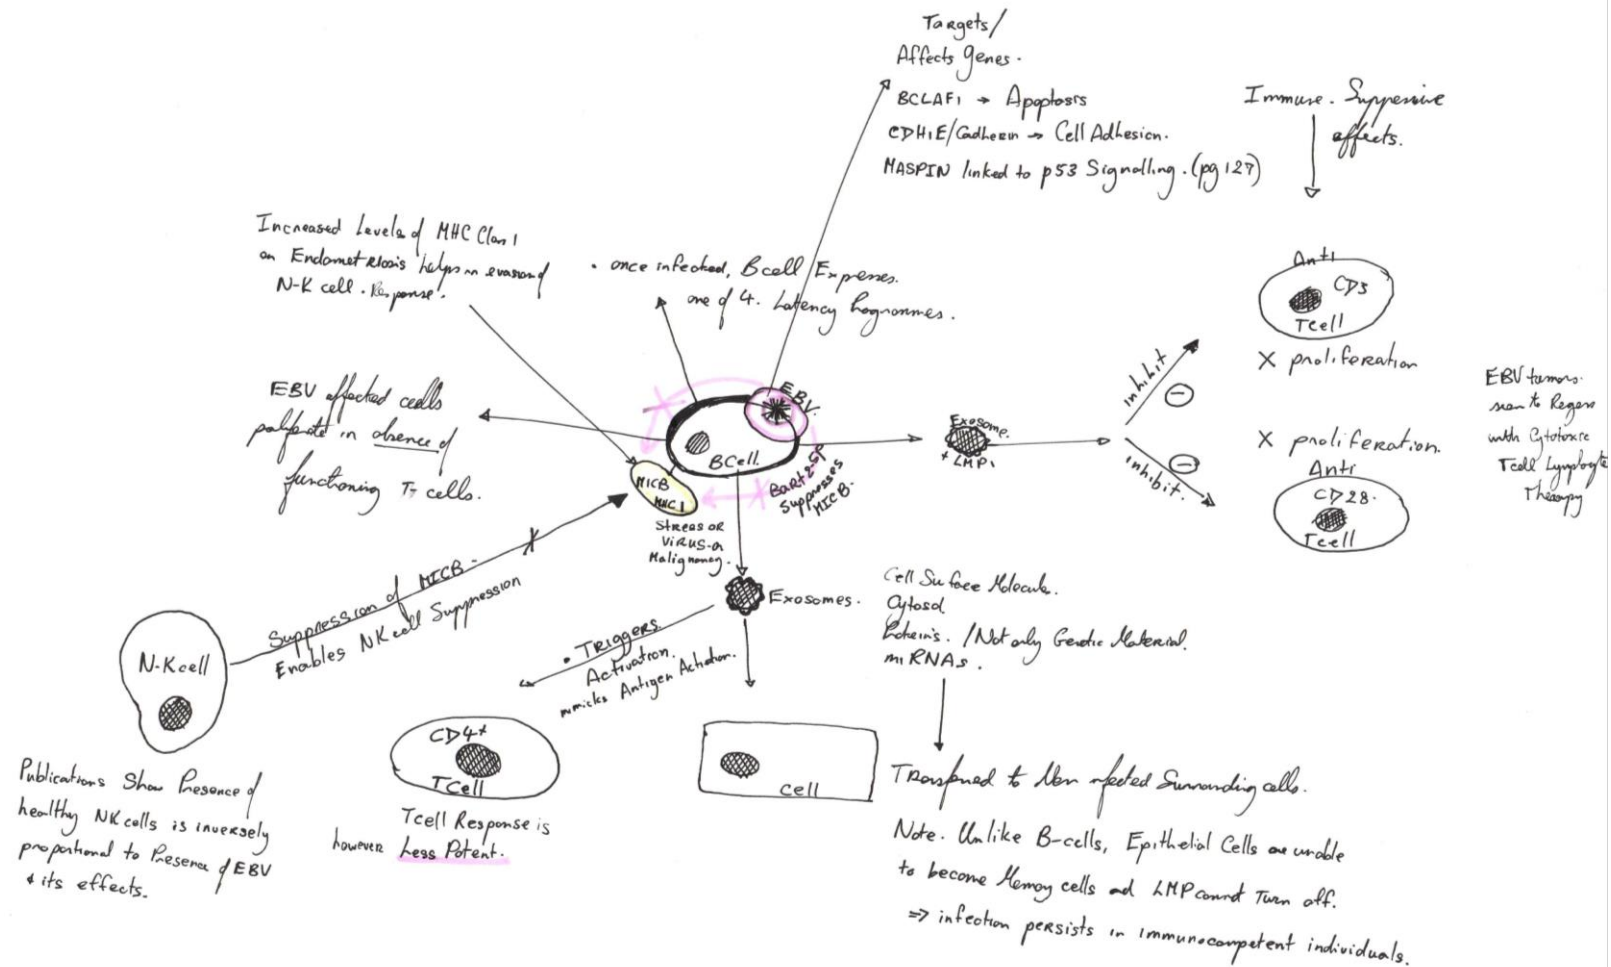 Targets/
Affects Genes.
BCLAF1 → Apoptosis
CDH1E/Cadherin → Cell Adhesion.
MASPIN linked to p53 Signalling. (pg 127)
Immune. Suppresive
effects.
Increased Levels of MHC Class 1
on Endometriosis helps in evasion of
N-K cell. Response.
• once infected, B cell Expresses.
one of 4. Latency Programmes.
EBV affected cells
proliferate in absence of
functioning T-cells.
EBV.
B Cell.
MICB
MHC 1
BART 2-5P
Suppresses
MICB.
Stress or
Virus or
Malignancy.
Exosome.
+ LMP1
inhibit
⊖
inhibit.
⊖
Anti
CD3
T cell
X proliferation
X proliferation.
Anti
CD28.
Tcell
EBV tumors.
seen to Regress
with Cytotoxic
T cell Lymphocyte
Therapy
Suppression of MICB.
Enables NK cell Suppression
N-K cell
Publications Show Presence of
healthy NK cells is inversely
proportional to Presence of EBV
& its effects.
Exosomes.
• Triggers
Activation.
mimicks Antigen Activation.
CD4+
T Cell
T cell Response is
however Less Potent.
cell
Cell Surface Molecule.
Cytosol
Proteins. / Not only Genetic Material.
miRNAs.
Transferred to Non infected Surrounding cells.
Note. Unlike B-cells, Epithelial Cells are unable
to become Memory cells and LMP cannot Turn off.
⇒ infection persists in immunocompetent individuals.